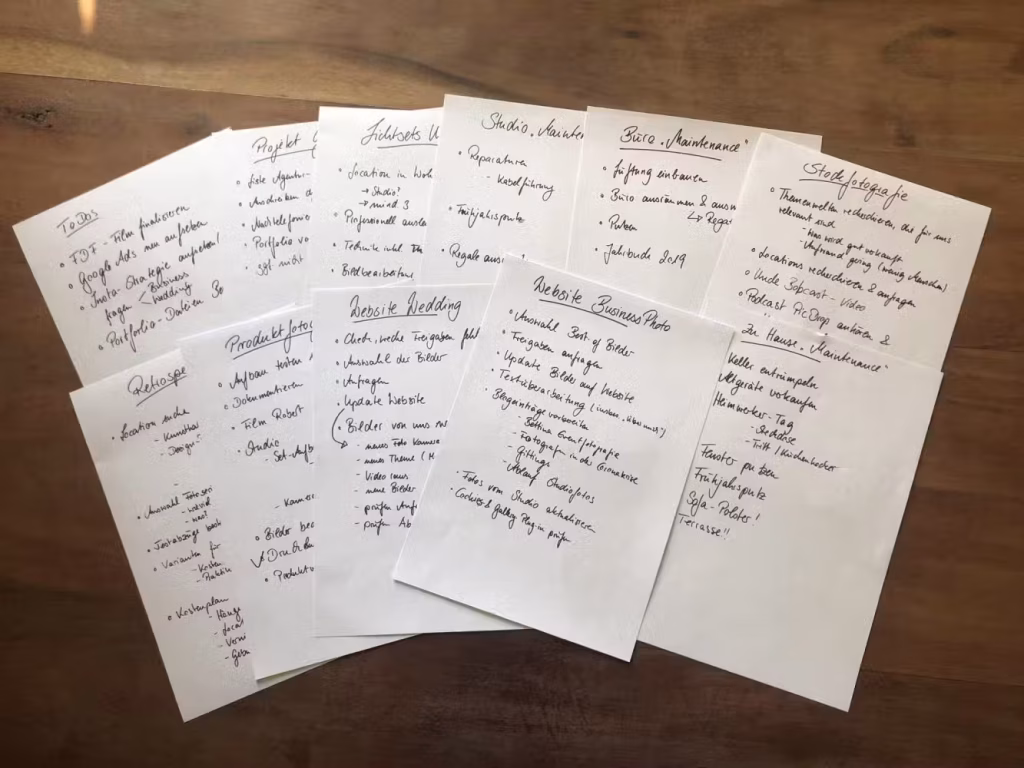 ToDos
• FDF - Film finalisieren
• Google Ads neu aufsetzen
• Insta-Strategie aufsetzen!
fragen < Business
Wedding
• Portfolio-Dateien
Projekt
• Liste Agentur-
• Portfolio
Lichtsets
• Location in
→ Studio?
→ mind 3
• Professionell
• Technik inkl
• Bildbearbeitung
Studio „Mainten
• Reparaturen
- Kabelführung
• Frühjahrsputz
• Regale
Büro „Maintenance"
• Lüftung einbauen
• Büro ausräumen &
↳ Rega
• Putzen
• Jahrbuch 2019
Stockfotografie
• Themenwelten recherchieren, die für uns
relevant sind
- Was wird gut verkauft
- Aufwand gering (wenig Menschen)
• Locations recherchieren & anfragen
• Video
• Podcast anhören &
Retrospe
• Location suche
- Kunsthar
- Design
• Auswahl Fotoseri
• Testabzüge
• Varianten für
- Kosten
- Praktik
• Kostenplan
- Hänge
- Local
- Verni
Produktfotog
• Aufbau testen
• Dokumentieren
• Film Robert
• Studio
Set-Aufb
- Kamer
• Bilder bea
• Produktv
Website Wedding
• Check, welche Freigaben fehl
• Auswahl der Bilder
• Anfragen
• Update Website
• Bilder von uns
- neues Foto Kamera
- neues Theme
- Video
- neue Bilder
- prüfen Anf
- prüfen Ab
Website BusinessPhoto
• Auswahl Best of Bilder
• Freigaben anfragen
• Update Bilder auf Website
• Textüberarbeitung (insbes. „über uns")
• Blogeinträge vorbereiten
- Bettina Eventfotografie
- Fotografen in der Coronakrise
- Gittings
- Ablauf Studiofotos
• Fotos vom Studio aktualisieren
• Cookies & Gallery Plug-in prüfen
Zu Hause „Maintenance"
Keller entrümpeln
Altgeräte verkaufen
Heimwerker-Tag
- Steckdose
- Tritt / Küchenhocker
Fenster putzen
Frühjahrsputz
Sofa-Polster!
Terrasse!!